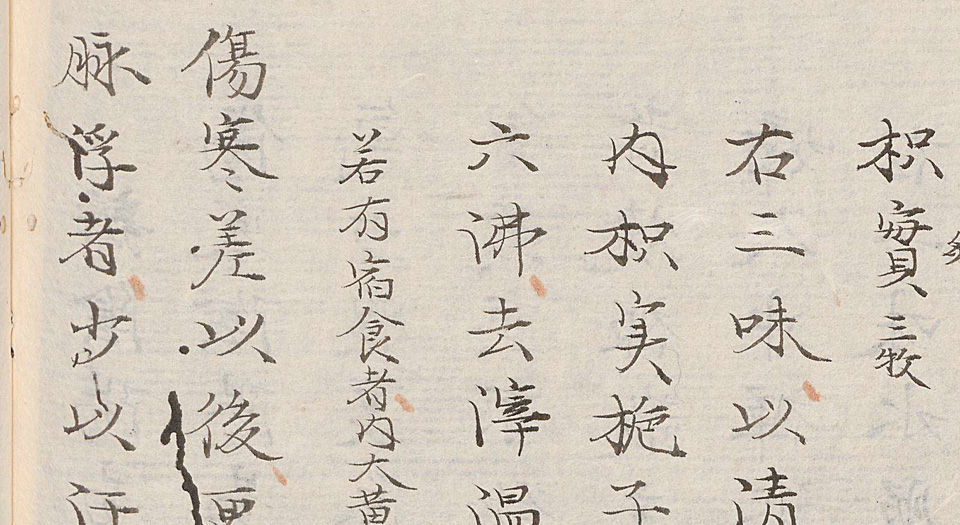 枳實三牧
右三味以清
内枳実栀子
六沸去滓温
若有宿食者内大黄
傷寒差以後更
脉浮者少以汗